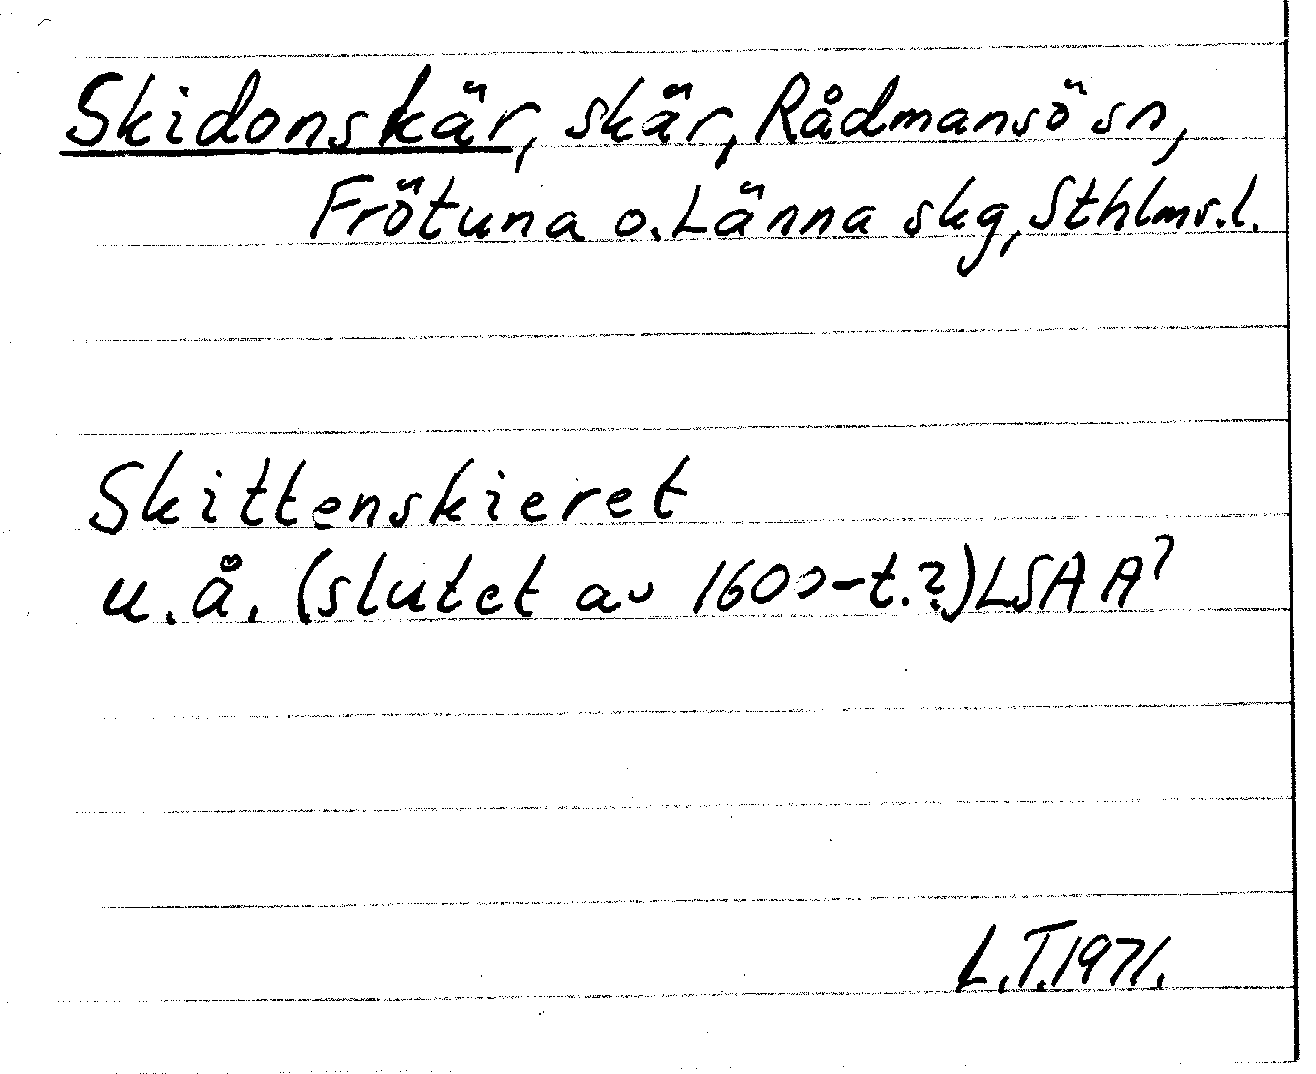 Skidonskär, skär, Rådmansö sn,
Frötuna o. Länna skg, Sthlms. l.
Skittenskieret
u.å. (slutet av 1600-t.?) LSA A⁷
L.T. 1971.